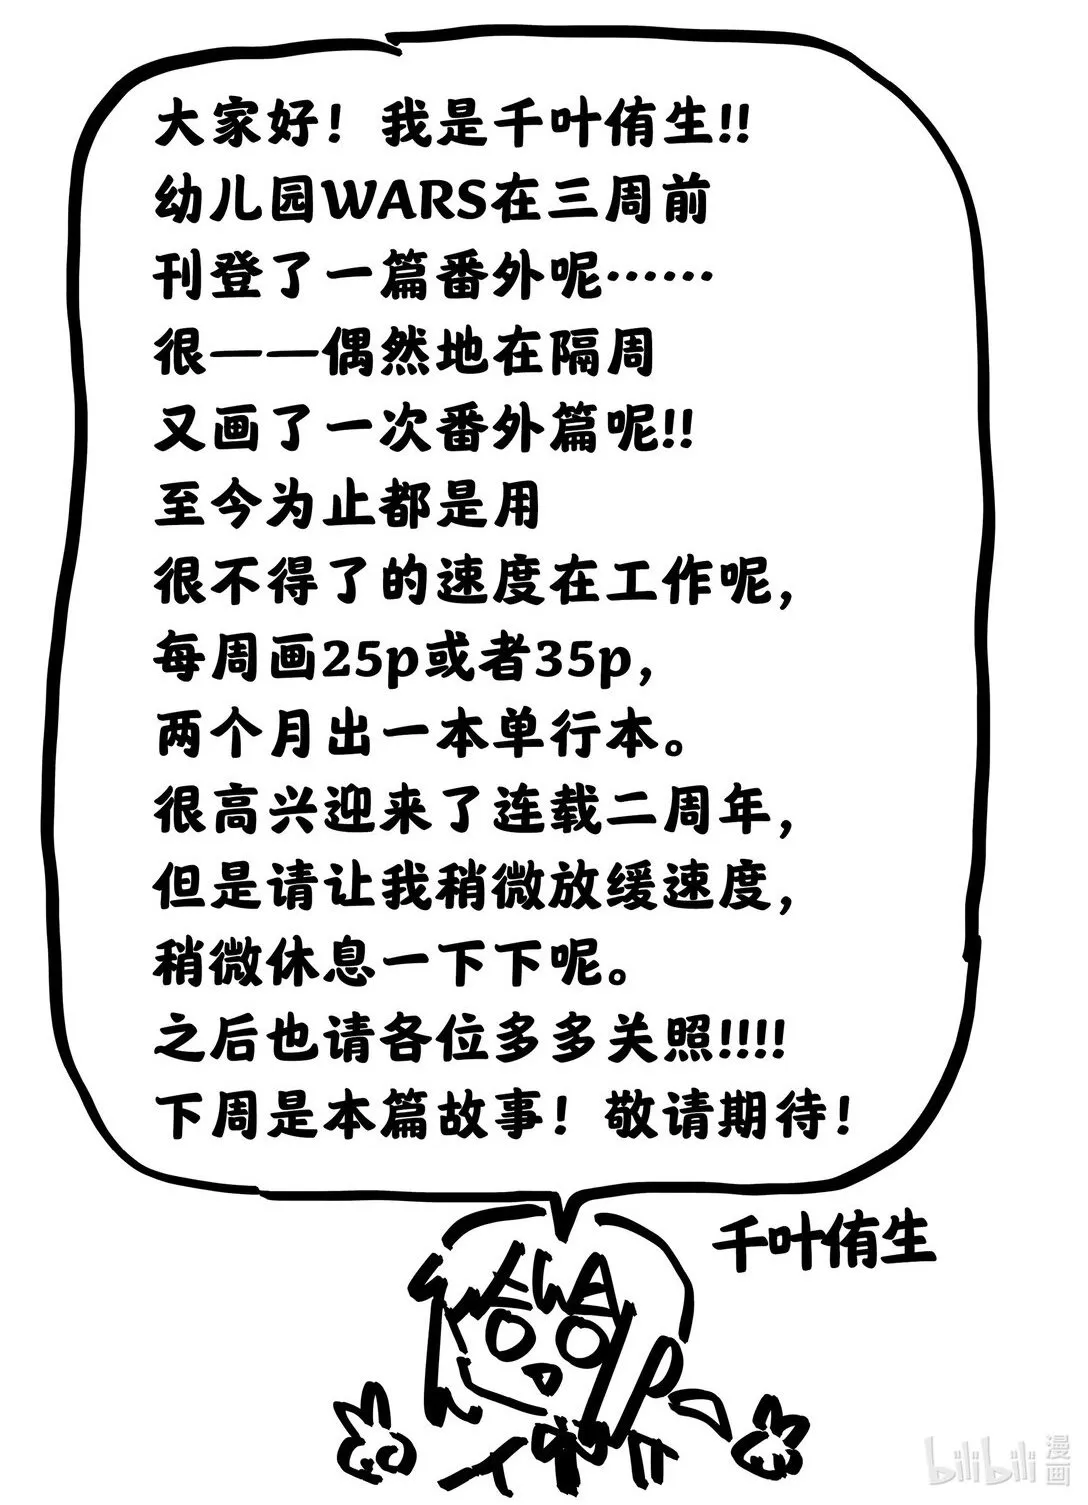 大家好！我是千叶侑生!!
幼儿园WARS在三周前
刊登了一篇番外呢……
很——偶然地在隔周
又画了一次番外篇呢!!
至今为止都是用
很不得了的速度在工作呢，
每周画25p或者35p，
两个月出一本单行本。
很高兴迎来了连载二周年，
但是请让我稍微放缓速度，
稍微休息一下下呢。
之后也请各位多多关照!!!!
下周是本篇故事！敬请期待！
千叶侑生
bilibili 漫画